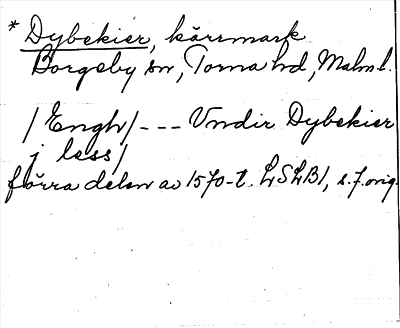 * Dybekier, kärrmark
Borgeby sn, Torna hd, Malm.l.
/Engh/ --- Vndir Dybekier
j less/
förra delen av 1570-t. LSLB1, s.7. orig.